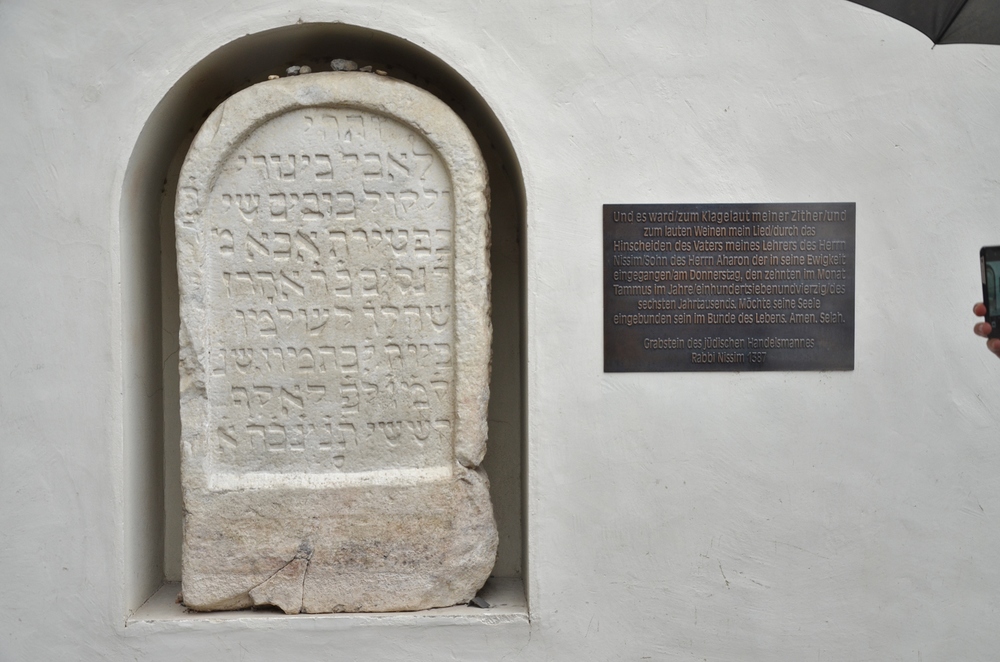 ותהי
לאבל כינורי
ולקול בוכים שי
בפטירת אבא מ
ר נסים בן ר אהרן
שהלך לעולמו
ביום בתמוז שנ
לאלף
הששי תנצבה א
Und es ward/zum Klagelaut meiner Zither/und
zum lauten Weinen mein Lied/durch das
Hinscheiden des Vaters meines Lehrers des Herrn
Nissim/Sohn des Herrn Aharon der in seine Ewigkeit
eingegangen/am Donnerstag, den zehnten im Monat
Tammus im Jahre/einhundertsiebenundvierzig/des
sechsten Jahrtausends. Möchte seine Seele
eingebunden sein im Bunde des Lebens. Amen. Selah.
Grabstein des jüdischen Handelsmannes
Rabbi Nissim 1387